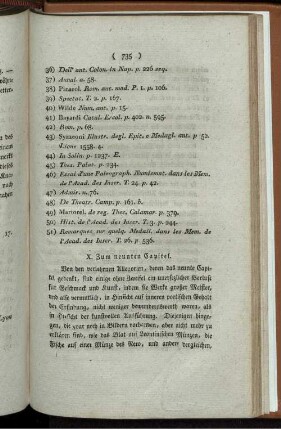 ( 735 )
36) Dell' ant. Colon. in Nap. p. 226 seq.
37) Annal. n. 58.
38) Pinarol. Rom. ant. und P. 1. p. 106.
39) Spectac. T. 2. p. 167.
40) Wilde Num. ant. p. 15.
41) Bayardi Catal. Ercol. p. 400. n. 595.
42) Hom. p. 68.
43) Symeoni Illustr. degl. Epit. e Medagl. ant. p 52.
Lione 1558. 4.
44) In Solin. p. 1237. E.
45) Thes. Palat. p. 234.
46) Essai d'une Paleograph. Numismat. dans les Mem.
de l'Acad. des Inscr. T. 24. p. 42.
47) n. 76.
48) De Theatr. Camp. p. 161. b.
49) Martorel. de reg. Thec. Calamar. p. 379.
50) Hist. de l'Acad. des Inscr. T. 3. p. 244.
51) Remarques sur quelq. Medaill. dans les Mem. de
l'Acad. des Inscr. T. 26. p 536.
X. Zum neunten Capitel.
Von den verlohrnen Allegorien, deren das neunte Capi-
tel gedenkt, sind einige ohne Zweifel ein vorzüglicher Verlust
für Geschmack und Kunst, indem sie Werke großer Meister,
und also vermuthlich, in Hinsicht auf inneren poetischen Gehalt
der Erfindung, nicht weniger bewundernswerth waren, als
in Hinsicht der kunstvollen Ausführung. Diejenigen hinge-
gen, die zwar noch in Bildern vorhanden, aber nicht mehr zu
erklären sind, wie das Blat auf Laertinischen Münzen, die
Fische auf einer Münze des Nero, und andere dergleichen,
17.